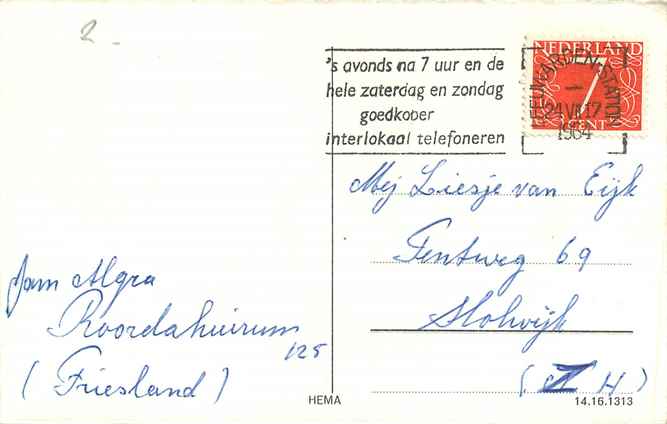 2
's avonds na 7 uur en de
hele zaterdag en zondag
goedkoper
interlokaal telefoneren
NEDERLAND
7
CENT
LEEUWARDEN-STATION
24 VII 17
1964
Mej Liesje van Eijk
Tentweg 69
Stolwijk
(Z H)
Jan Algra
Roordahuizum
125
(Friesland)
HEMA
14.16.1313